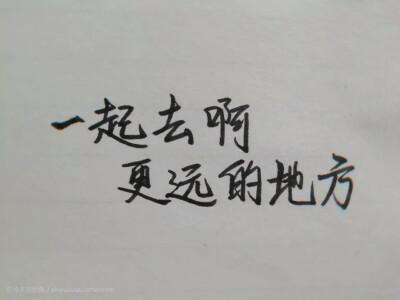 一起去啊
更远的地方